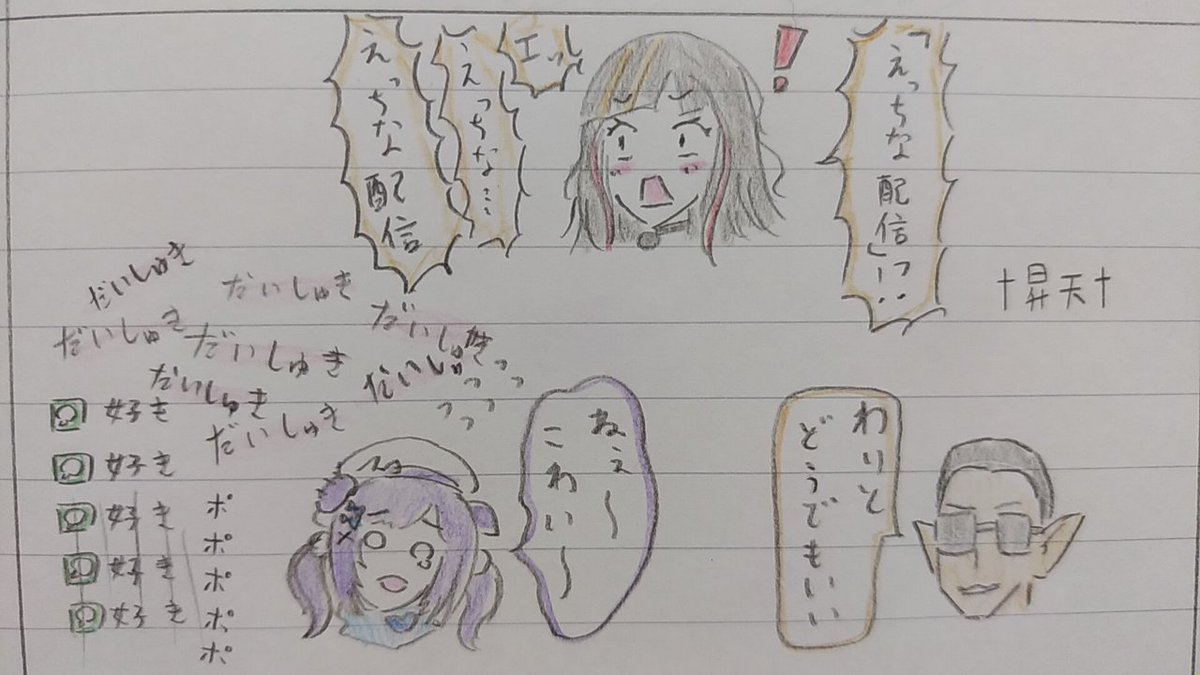 「えっちな配信」!?
エッ
えっちな…
えっちな配信
†昇天†
だいしゅき
だいしゅき
だいしゅき
だいしゅき
だいしゅき
だいしゅき
だいしゅき
だいしゅき
っっっっっ
わりと
どうでもいい
ねぇ〜
こわい〜
好き
好き
好き
好き
好き
ポポポポポ